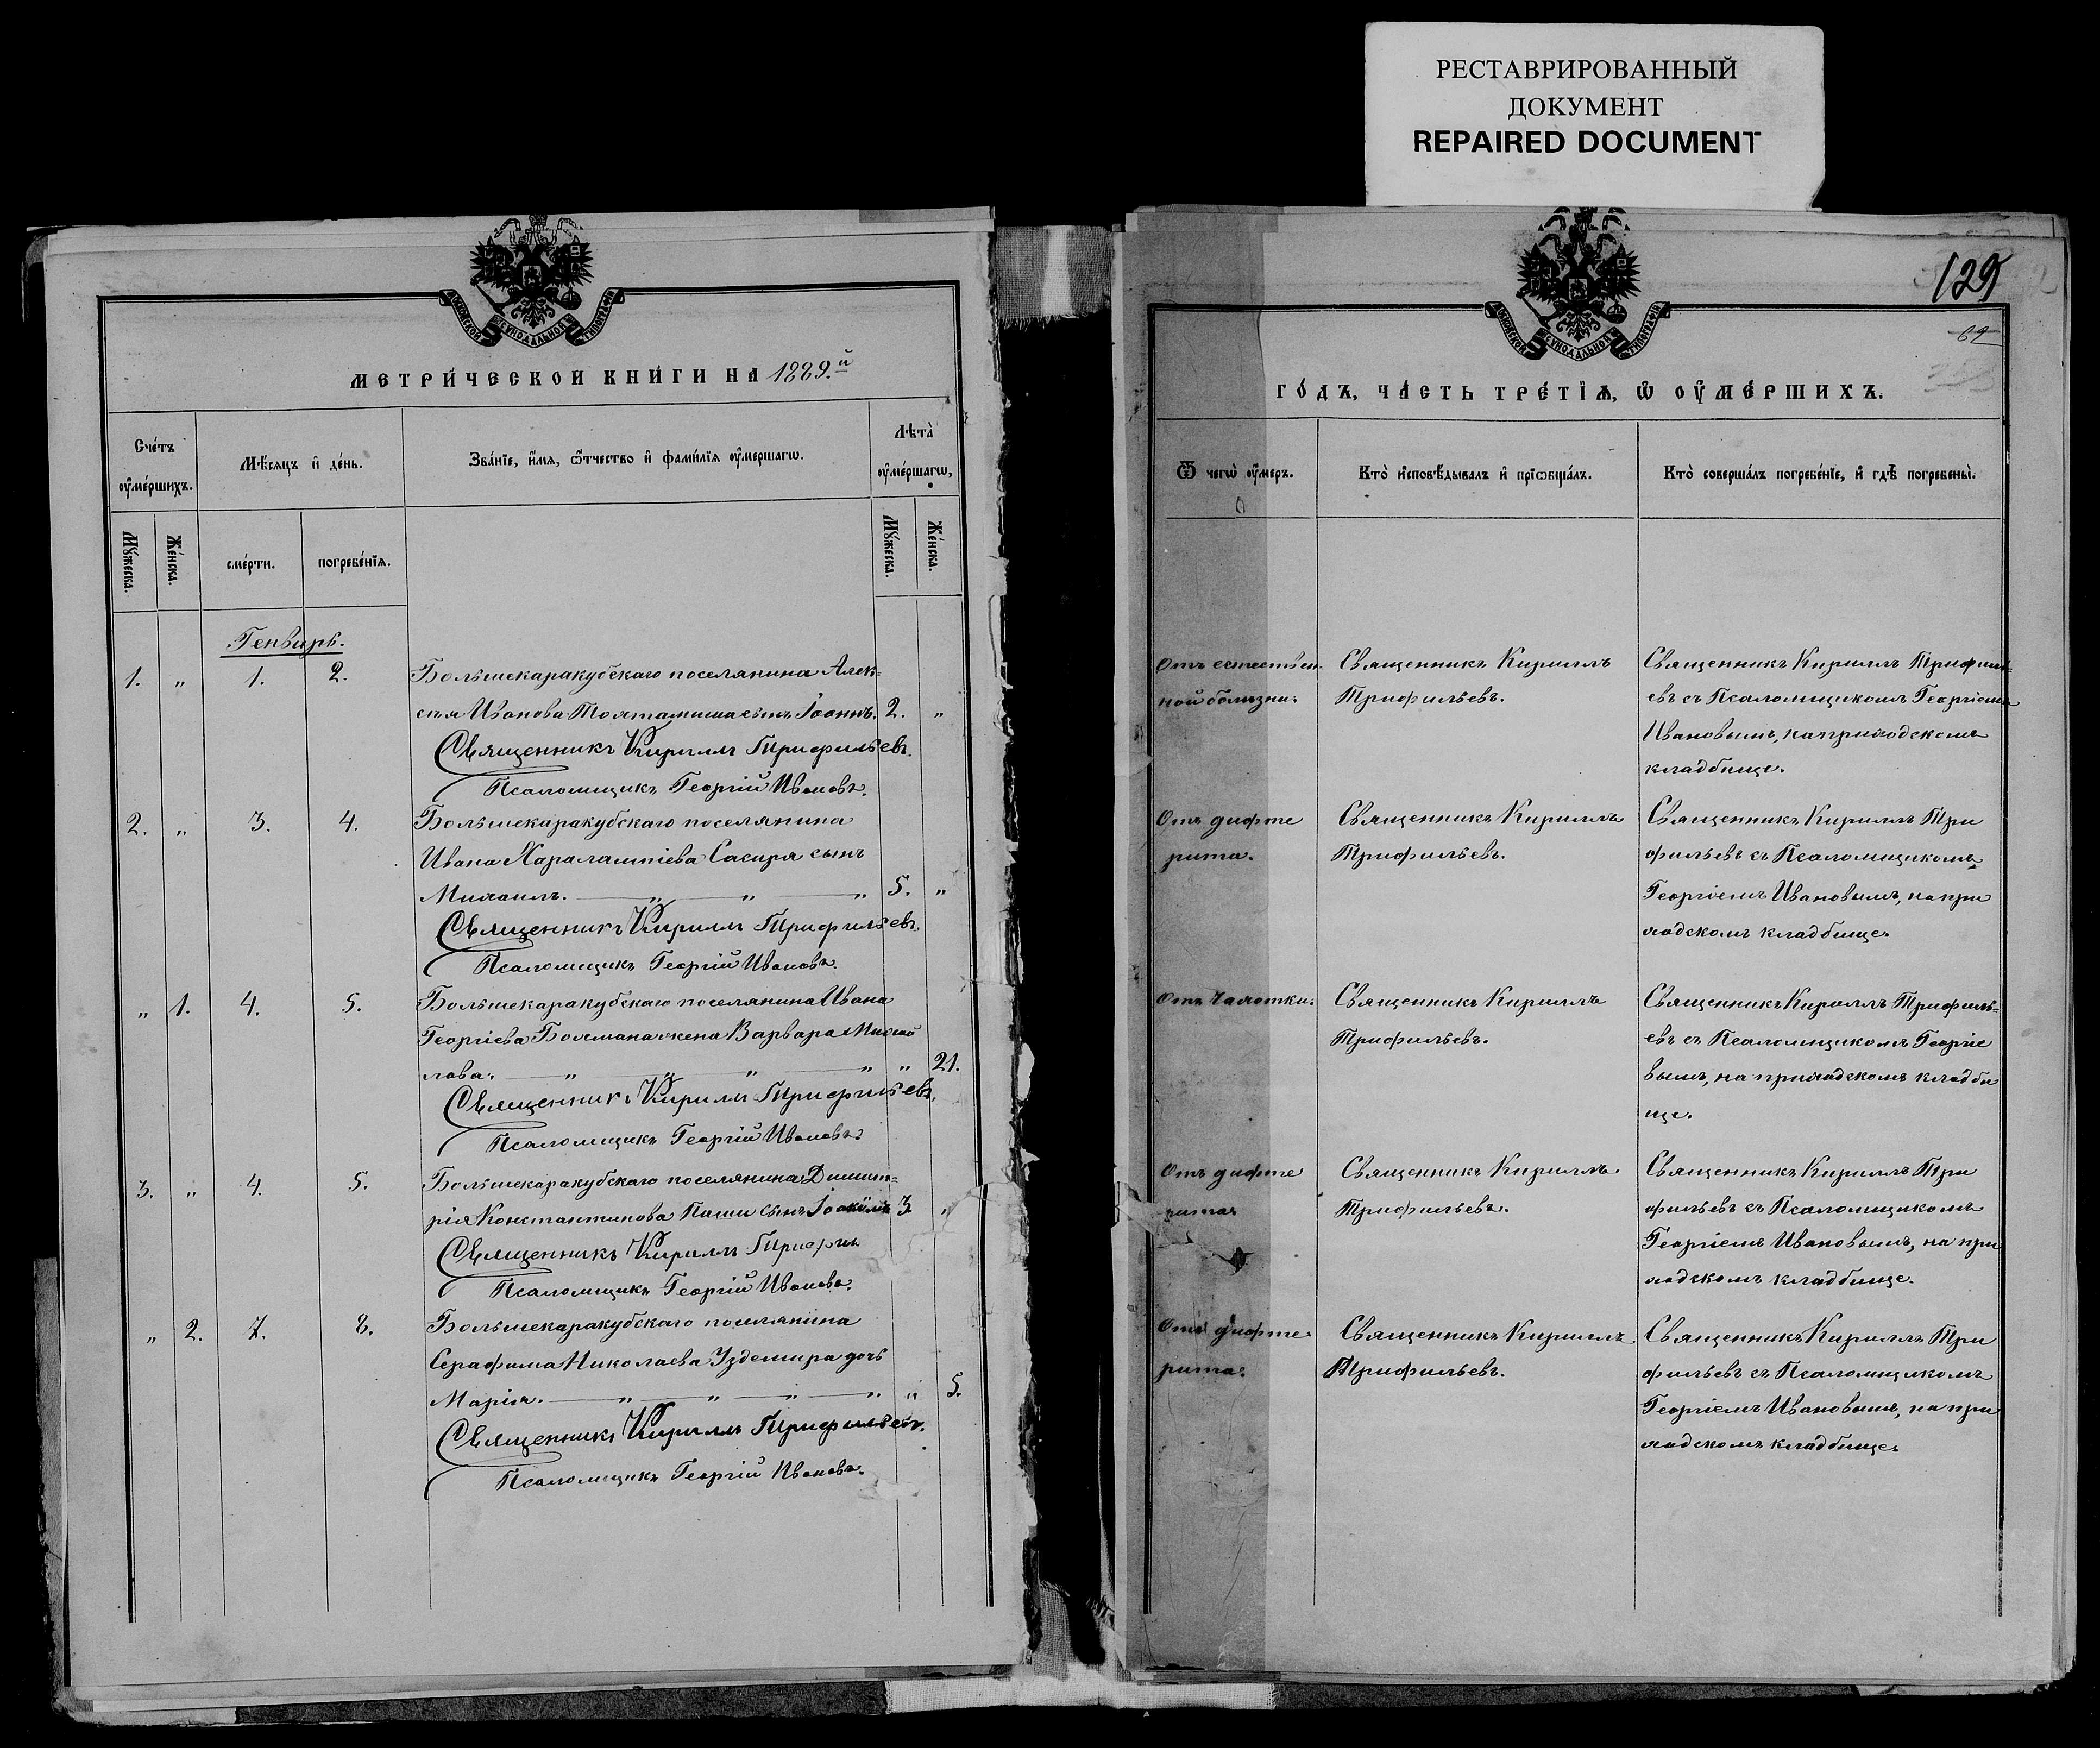 РЕСТАВРИРОВАННЫЙ
ДОКУМЕНТ
REPAIRED DOCUMENT
МОСКОВСКОЙ СѴНОДАЛЬНОЙ ТИПОГРАФІИ
МЕТРИ́ЧЕСКОЙ КНИ́ГИ НА 1889.й
Сче́тъ оу҆ме́ршихъ.
Мѣ́сяцъ и҆ де́нь.
Зва́нїе, и҆́мя, ѻ҆́тчество и҆ фами́лїя оу҆ме́ршагѡ.
Лѣта̀ оу҆ме́ршагѡ,
Мꙋ́жеска.
Же́нска.
сме́рти.
погребе́нїѧ.
Мꙋ́жеска.
Же́нска.
Генварь.
1. „ 1. 2. Большекаракубскаго поселянина Алек-
сѣя Иванова Тохтамиша сынъ Іоаннъ. 2. „
Священникъ Кириллъ Трифильевъ.
Псаломщикъ Георгій Ивановъ.
2. „ 3. 4. Большекаракубскаго поселянина
Ивана Харалампіева Сахиря сынъ
Михаилъ. „ „ „ 5. „
Священникъ Кириллъ Трифильевъ.
Псаломщикъ Георгій Ивановъ.
„ 1. 4. 5. Большекаракубскаго поселянина Ивана
Георгіева Бахмана жена Варвара Михай
лова. „ „ „ „ „ 21.
Священникъ Кириллъ Трифильевъ.
Псаломщикъ Георгій Ивановъ.
3. „ 4. 5. Большекаракубскаго поселянина Димит-
рія Константинова Паши сынъ Іоакимъ 3 „
Священникъ Кириллъ Трифи
Псаломщикъ Георгій Ивановъ.
„ 2. 7. 8. Большекаракубскаго поселянина
Серафима Николаева Уздемира дочь
Марія. „ „ „ „ „ 5.
Священникъ Кириллъ Трифильевъ.
Псаломщикъ Георгій Ивановъ.
129
69
МОСКОВСКОЙ СѴНОДАЛЬНОЙ ТИПОГРАФІИ
ГО́ДЪ, ЧА́СТЬ ТРЕ́ТЇѦ, Ѡ҆ ОУ҆МЕ́РШИХЪ.
Ѿ чегѡ̀ оу҆́меръ.
Кто̀ и҆сповѣ́дывалъ и҆ прїѡбща́лъ.
Кто̀ соверша́лъ погребе́нїе, и҆ гдѣ̀ погребены̀.
Отъ естествен-
ной болѣзни.
Священникъ Кириллъ
Трифильевъ.
Священникъ Кириллъ Трифиль-
евъ съ Псаломщикомъ Георгіемъ
Ивановымъ, на приходскомъ
кладбище.
Отъ дифте
рита.
Священникъ Кириллъ
Трифильевъ.
Священникъ Кириллъ Три
фильевъ съ Псаломщикомъ
Георгіемъ Ивановымъ, на при
ходскомъ кладбище.
Отъ чахотки.
Священникъ Кириллъ
Трифильевъ.
Священникъ Кириллъ Трифиль-
евъ съ Псаломщикомъ Георгіе
вымъ, на приходскомъ кладби
ще.
Отъ дифте
рита
Священникъ Кириллъ
Трифильевъ.
Священникъ Кириллъ Три
фильевъ съ Псаломщикомъ
Георгіемъ Ивановымъ, на при
ходскомъ кладбище.
Отъ дифте
рита.
Священникъ Кириллъ
Трифильевъ.
Священникъ Кириллъ Три
фильевъ съ Псаломщикомъ
Георгіемъ Ивановымъ, на при
ходскомъ кладбище.